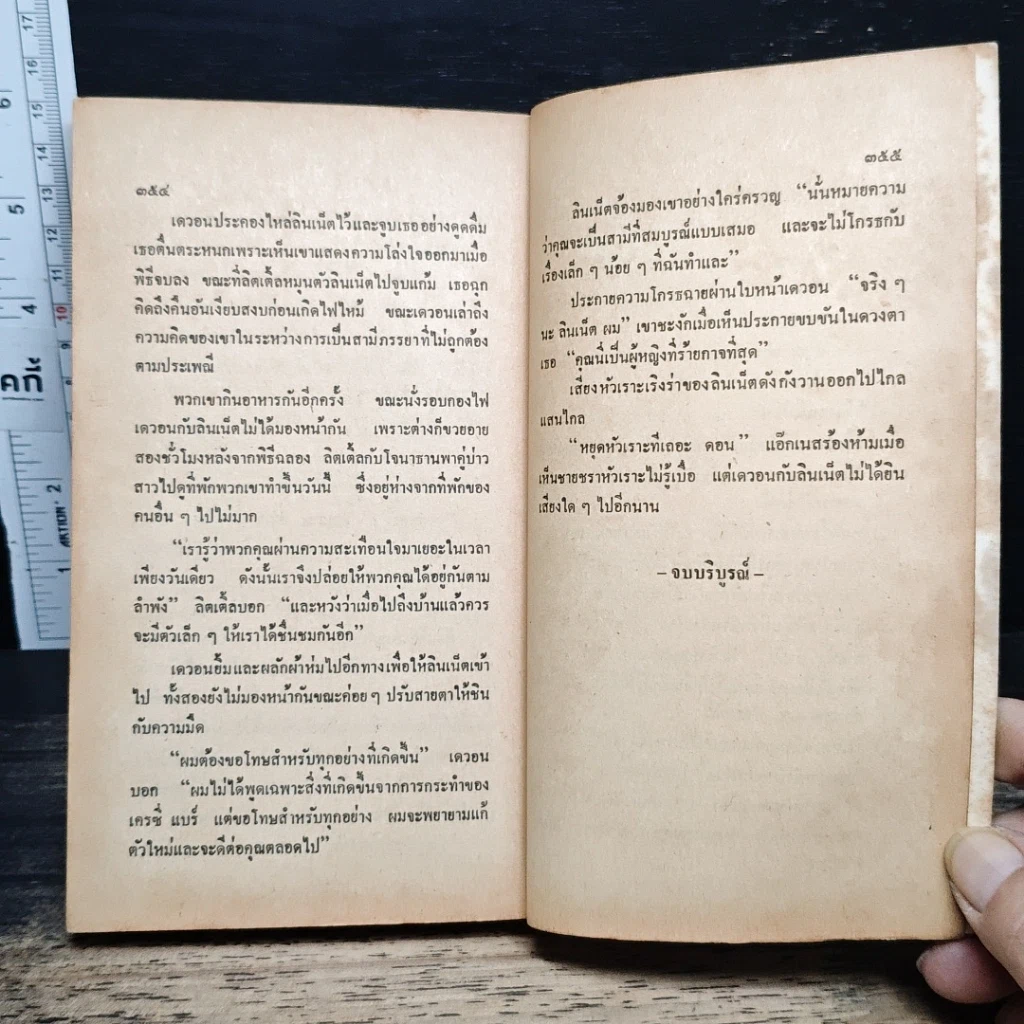 ๓๕๔
เดวอนประคองไหล่ลินเน็ตไว้และจูบเธออย่างดูดดื่ม
เธอตื่นตระหนกเพราะเห็นเขาแสดงความโล่งใจออกมาเมื่อ
พิธีจบลง ขณะที่ลิตเติ้ลหมุนตัวลินเน็ตไปจูบแก้ม เธอฉุก
คิดถึงคืนอันเงียบสงบก่อนเกิดไฟไหม้ ขณะเดวอนเล่าถึง
ความคิดของเขาในระหว่างการเป็นสามีภรรยาที่ไม่ถูกต้อง
ตามประเพณี
พวกเขากินอาหารกันอีกครั้ง ขณะนั่งรอบกองไฟ
เดวอนกับลินเน็ตไม่ได้มองหน้ากัน เพราะต่างก็ขวยอาย
สองชั่วโมงหลังจากพิธีฉลอง ลิตเติ้ลกับโจนาธานพาคู่บ่าว
สาวไปดูที่พักพวกเขาทำขึ้นวันนี้ ซึ่งอยู่ห่างจากที่พักของ
คนอื่น ๆ ไปไม่มาก
“เรารู้ว่าพวกคุณผ่านความสะเทือนใจมาเยอะในเวลา
เพียงวันเดียว ดังนั้นเราจึงปล่อยให้พวกคุณได้อยู่กันตาม
ลำพัง” ลิตเติ้ลบอก “และหวังว่าเมื่อไปถึงบ้านแล้วควร
จะมีตัวเล็ก ๆ ให้เราได้ชื่นชมกันอีก”
เดวอนยิ้มและผลักผ้าห่มไปอีกทางเพื่อให้ลินเน็ตเข้า
ไป ทั้งสองยังไม่มองหน้ากันขณะค่อย ๆ ปรับสายตาให้ชิน
กับความมืด
“ผมต้องขอโทษสำหรับทุกอย่างที่เกิดขึ้น” เดวอน
บอก “ผมไม่ได้พูดเฉพาะสิ่งที่เกิดขึ้นจากการกระทำของ
เครซี่ แบร์ แต่ขอโทษสำหรับทุกอย่าง ผมจะพยายามแก้
ตัวใหม่และจะดีต่อคุณตลอดไป”
๓๕๕
ลินเน็ตจ้องมองเขาอย่างใคร่ครวญ “นั่นหมายความ
ว่าคุณจะเป็นสามีที่สมบูรณ์แบบเสมอ และจะไม่โกรธกับ
เรื่องเล็ก ๆ น้อย ๆ ที่ฉันทำและ”
ประกายความโกรธฉายผ่านใบหน้าเดวอน “จริง ๆ
นะ ลินเน็ต ผม” เขาชะงักเมื่อเห็นประกายขบขันในดวงตา
เธอ “คุณนี่เป็นผู้หญิงที่ร้ายกาจที่สุด”
เสียงหัวเราะเริงร่าของลินเน็ตดังกังวานออกไปไกล
แสนไกล
“หยุดหัวเราะทีเถอะ ดอน” แอ๊กเนสร้องห้ามเมื่อ
เห็นชายชราหัวเราะไม่รู้เบื่อ แต่เดวอนกับลินเน็ตไม่ได้ยิน
เสียงใด ๆ ไปอีกนาน
– จบบริบูรณ์ –
17
16
15
14
13
12
11
10
9
6
5
2
1